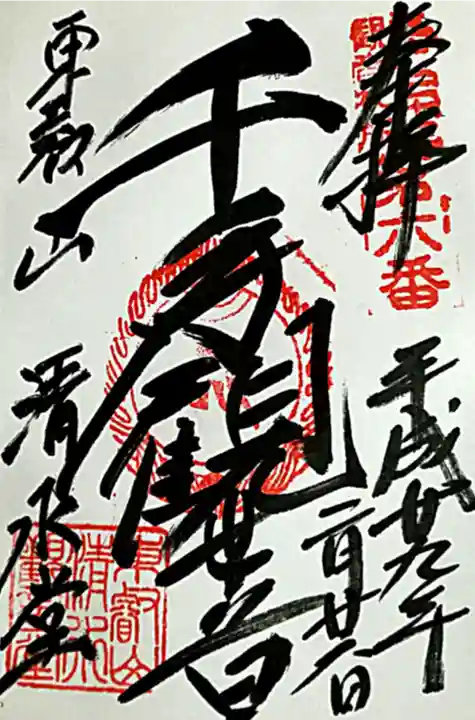 奉拝
第六番
平成廿九年
二月廿
千手観世音
東叡山
清水堂
東叡山
清水
観音堂